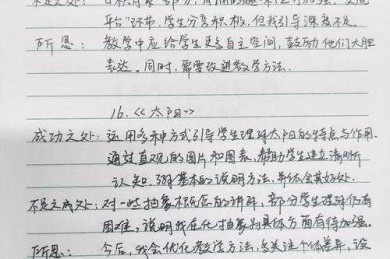 平台"环节,学生分享积极,但我引导深度不足。
所思: 教学中应给学生更多自主空间,鼓励他们大胆
表达。同时,需要改进教学方法。
16.《太阳》
成功之处:运用多种方式引导学生理解太阳的特点与作用。
通过直观的图片和图表,帮助学生建立清晰
认知,了解基本的说明方法,并体会其好处。
不足之处:对一些抽象概念的讲解,部分学生理解仍有
困难,说明我在化抽象为具体方面有待加强。
所思: 今后,我会优化教学方法,关注个体差异,设